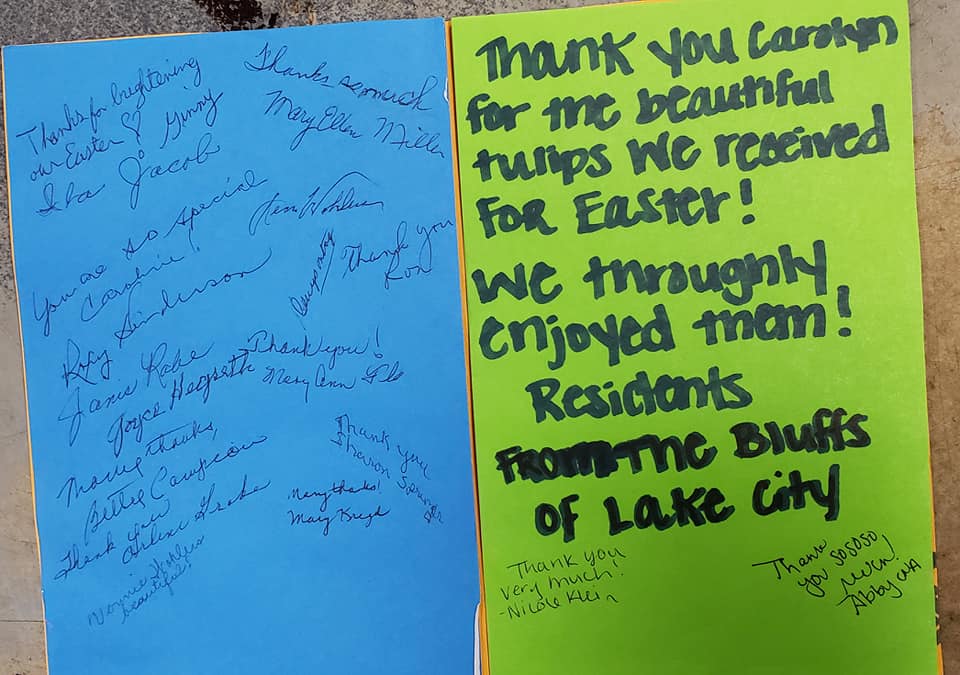 Thanks for brightening
our Easter ♡ Ginny
Jacob
You are so special
Caroline!
Roxy
Janis Rabe
Joyce
Many thanks,
Bettie Campion
Thank you
Arlene
beautiful!
Thanks so much
Mary Ellen Miller
Thank you
Ron
Thank you!
Mary Ann
Thank you
Sharon
Many thanks!
Mary
Thank you Carolyn
for the beautiful
tulips we received
For Easter!
We throughly
enjoyed them!
Residents
From the Bluffs
of Lake City
Thank you
very much!
-Nicole Klein
Thank
you sososo
much
Abby CNA